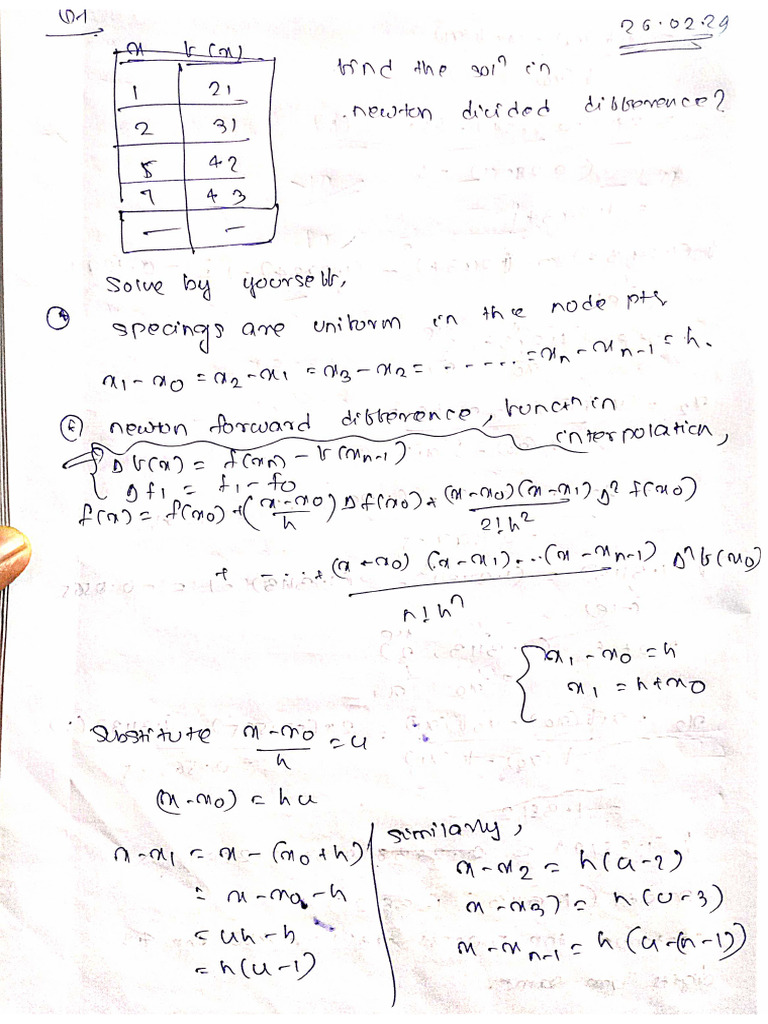 Q1.
26.02.24
x f(x)
1 21
2 31
5 42
7 43
— —
find the solⁿ in
newton divided difference?
Solve by yourself,
* specings are uniform in the node pts
x₁ - x₀ = x₂ - x₁ = x₃ - x₂ = ------- = xₙ - xₙ₋₁ = h.
newton forward difference, function
interpolation,
Δ f(x) = f(xₙ) - f(xₙ₋₁)
Δ f₁ = f₁ - f₀
f(x) = f(x₀) + ((x - x₀)/h) Δ f(x₀) + ((x - x₀)(x - x₁)/2!h²) Δ² f(x₀)
+ ----- + ((x - x₀) (x - x₁) --- (x - xₙ₋₁)/n!hⁿ) Δⁿ f(x₀)
{ x₁ - x₀ = h
x₁ = h + x₀
substitute (x - x₀)/h = u
(x - x₀) = hu
x - x₁ = x - (x₀ + h)
= x - x₀ - h
= uh - h
= h(u - 1)
similarly,
x - x₂ = h(u - 2)
x - x₃ = h(u - 3)
x - xₙ₋₁ = h(u - (n - 1))